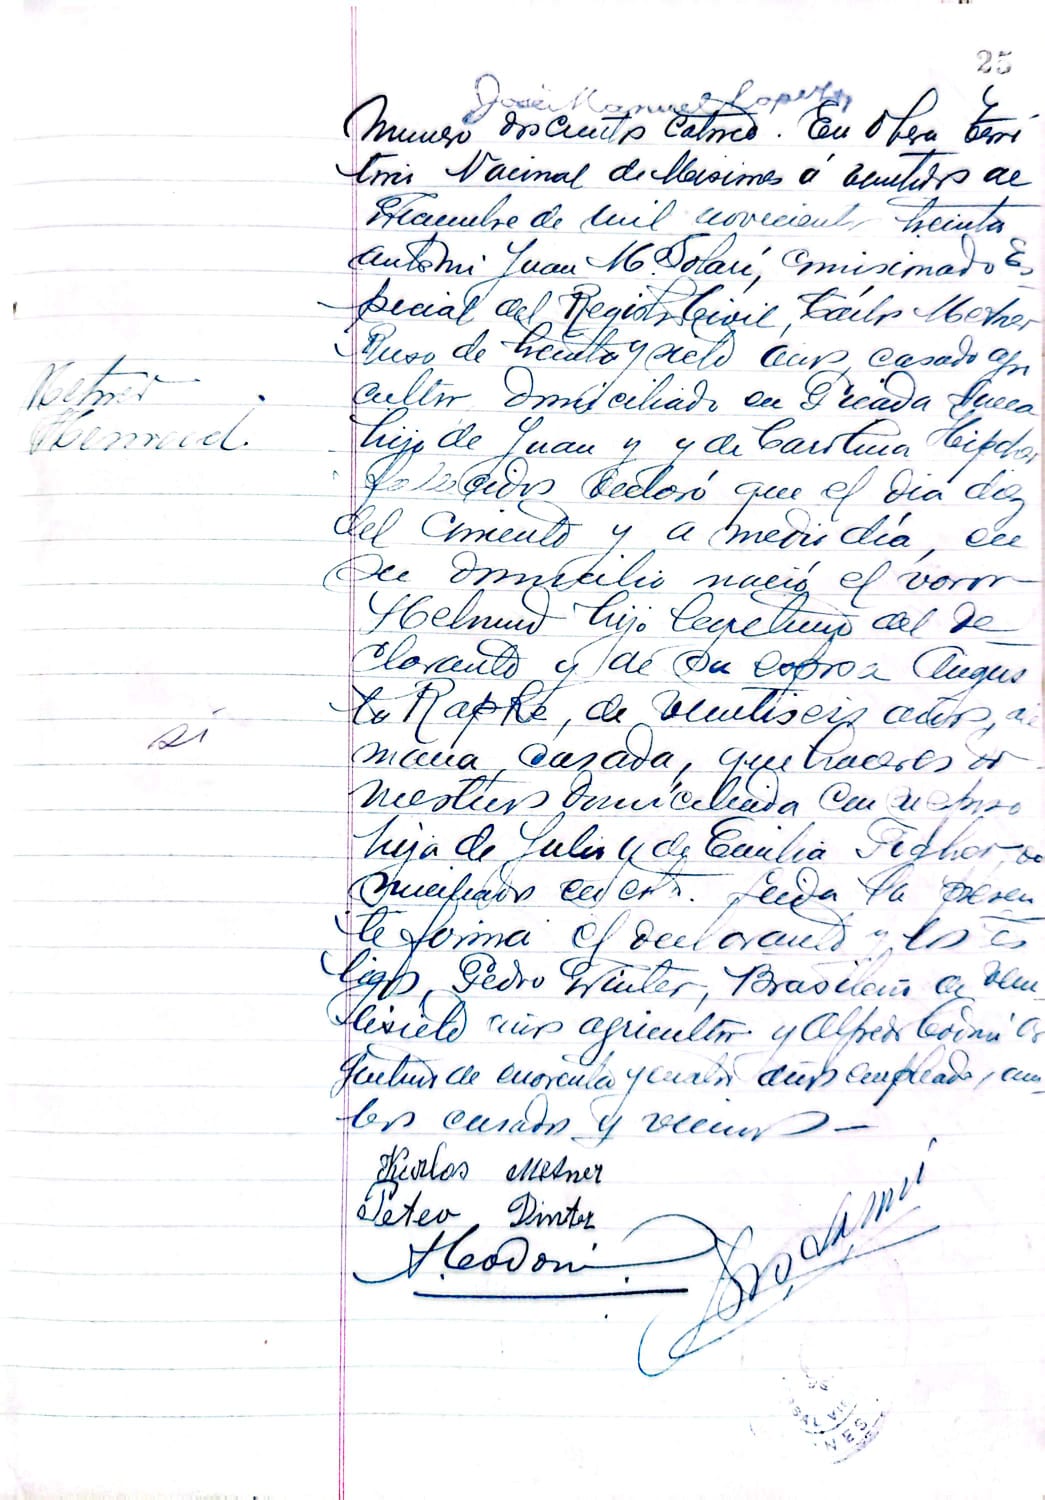 25
José Manuel Lopez
Numero doscientos catorce. En Obera Terri
torio Nacional de Misiones á veintidos de
Diciembre de mil novecientos treinta
ante mi Juan M. Solari, Comisionado Es
pecial del Registro Civil, Carlos Metner
Ruso de treinta y siete años, casado agri
cultor, domiciliado en Picada Sueca
hijo de Juan y y de Carolina
fallecidos declaró que el dia diez
del corriente y a medio dia, en
su domicilio nació el varon
Metner
Helmud.
Helmud hijo legitimo del de
clarante y de su esposa Augus
ta Rapke, de veintiseis años, ale
si
mana, casada, quehaceres do
mesticos domiciliada con su esposo
hija de Julio y de Emilia Figher, do
miciliados en esta. Leida la presen
te firma el declarante y los tes
tigos, Pedro Winter, Brasileño de vein
tisiete años agricultor y Alfredo Codoni Ar
gentino de cuarenta y cuatro años empleado, am
bos casados y vecinos —
Karlos Metner
Peter Winter
A. Codoni
NES